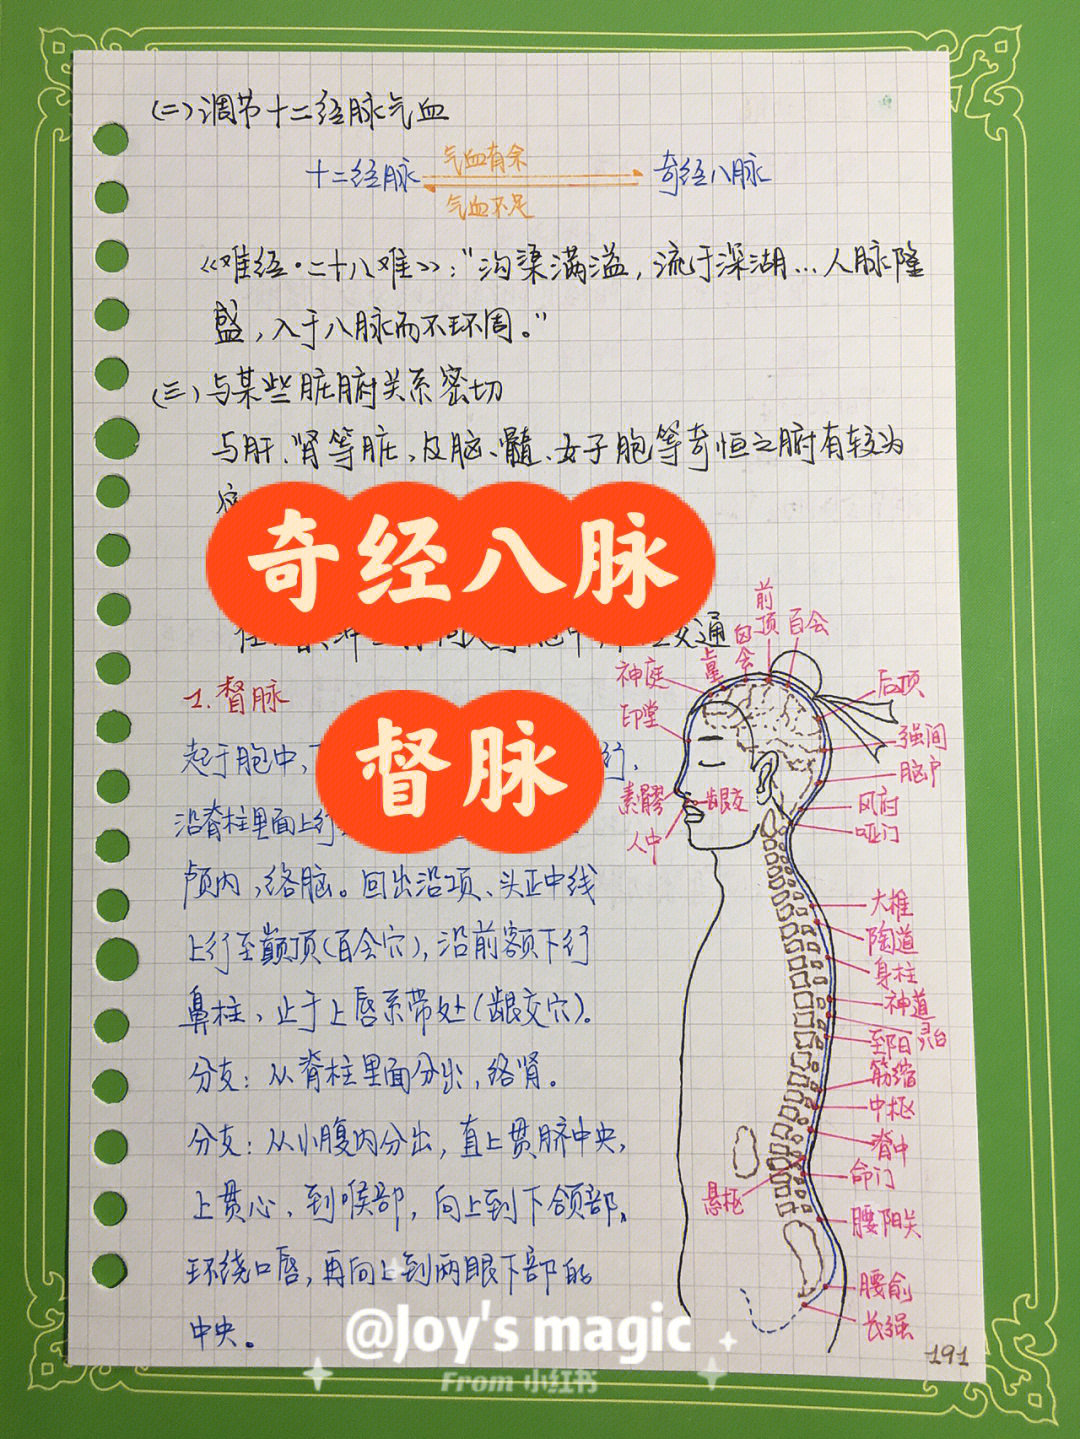 (二)调节十二经脉气血
气血有余
十二经脉 奇经八脉
气血不足
《难经·二十八难》:"沟渠满溢,流于深湖…人脉隆
盛,入于八脉而不环周。"
(三)与某些脏腑关系密切
与肝、肾等脏,及脑、髓、女子胞等奇恒之腑有较为
奇经八脉
交通
1.督脉
督脉
起于胞中,
行,
沿脊柱里面上行
颅内,络脑。回出沿项、头正中线
上行至巅顶(百会穴),沿前额下行
鼻柱,止于上唇系带处(龈交穴)。
分支:从脊柱里面分出,络肾。
分支:从小腹内分出,直上贯脐中央,
上贯心,到喉部,向上到下颌部,
环绕口唇,再向上到两眼下部的
中央。
前顶
百会
囟会
上星
神庭
印堂
素髎
人中
龈交
后顶
强间
脑户
风府
哑门
大椎
陶道
身柱
神道
灵台
至阳
筋缩
中枢
脊中
命门
悬枢
腰阳关
腰俞
长强
@Joy's magic
From 小红书
191